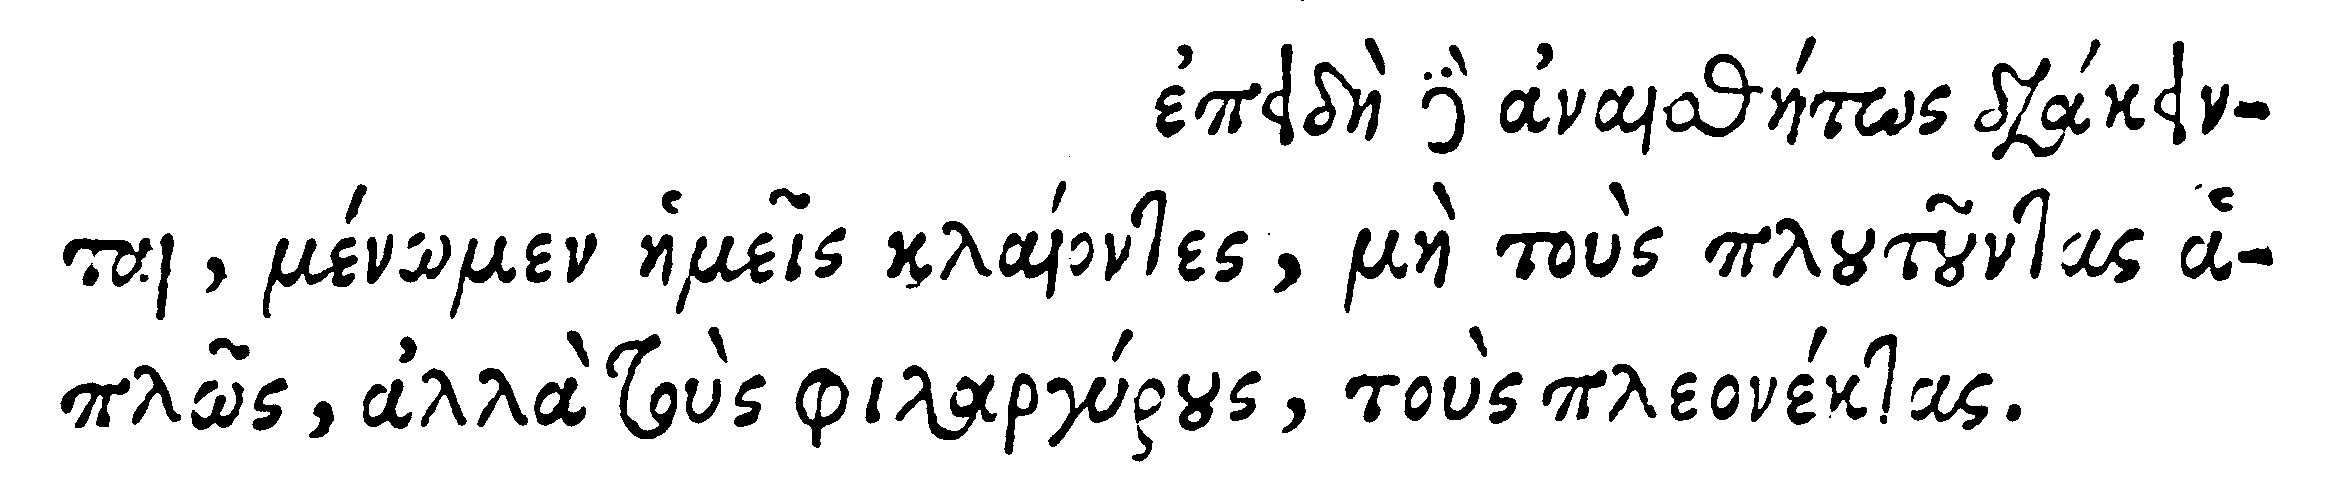 ἐπειδὴ δὲ ἀναισθήτως διάκειν-
ται, μένωμεν ἡμεῖς κλαίοντες, μὴ τοὺς πλουτοῦντας ἁ-
πλῶς, ἀλλὰ τοὺς φιλαργύρους, τοὺς πλεονέκτας.